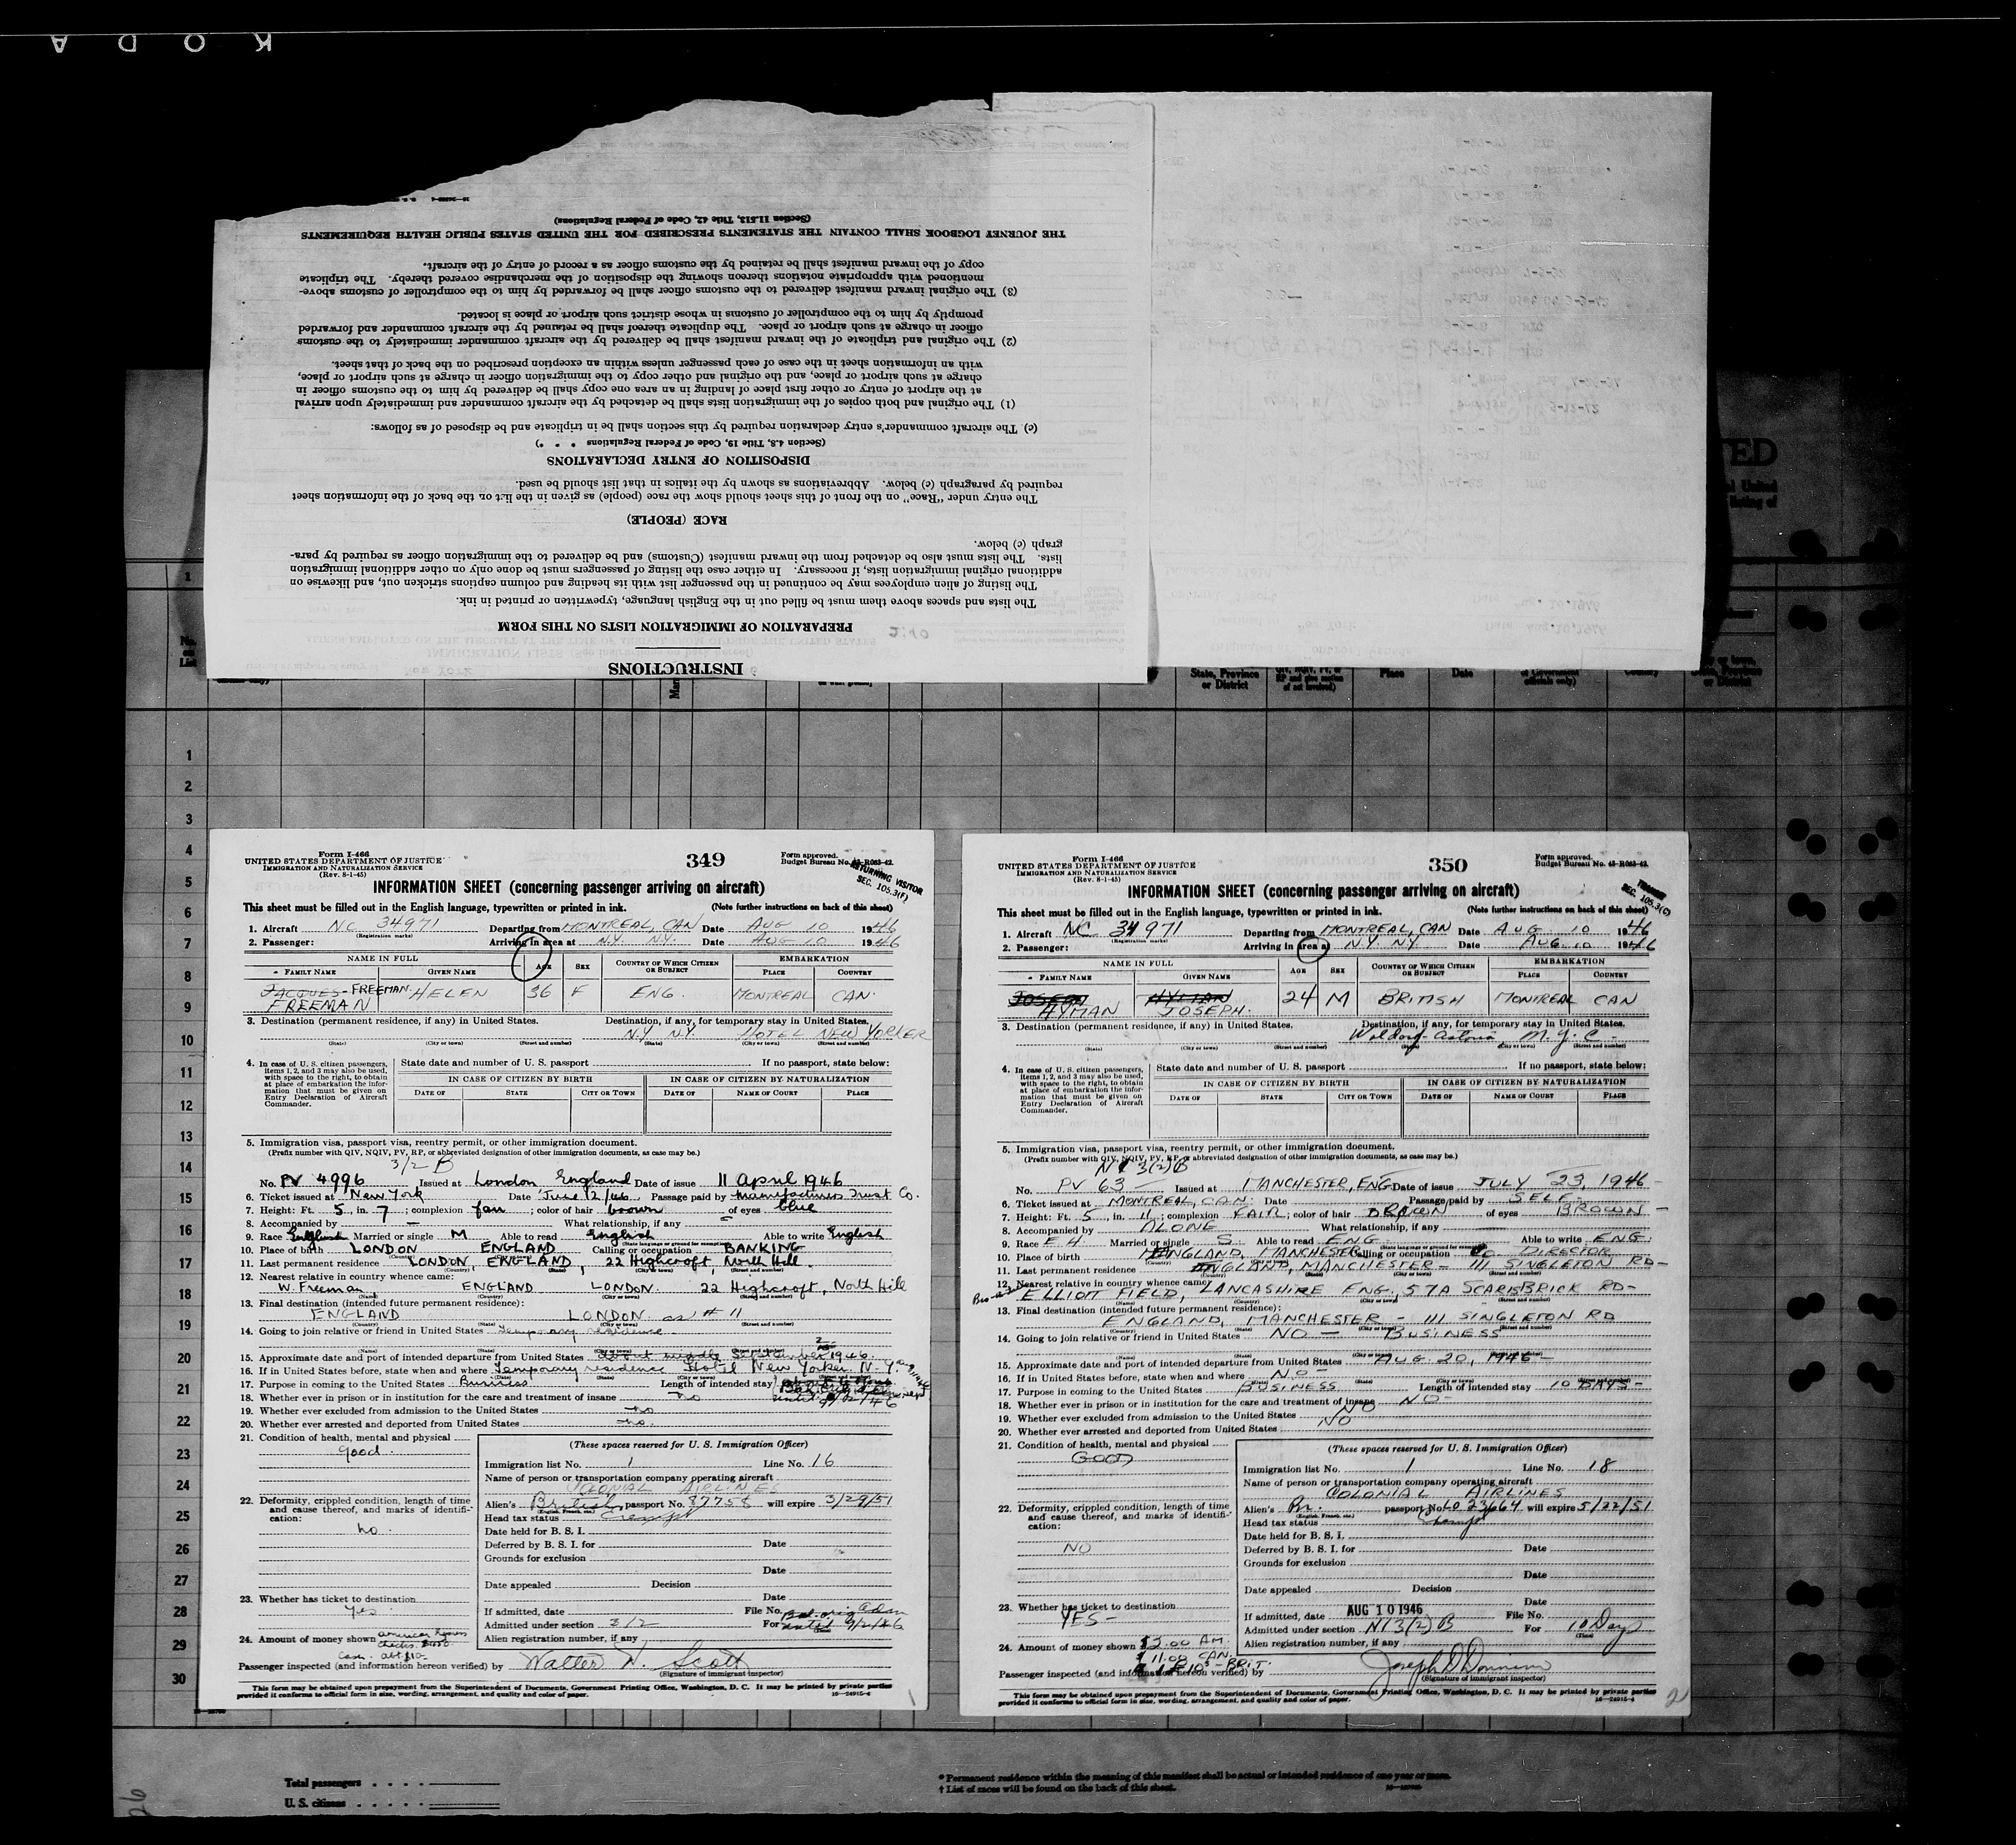 KODA
(Section 11.513, Title 42, Code of Federal Regulations)
THE JOURNEY LOGBOOK SHALL CONTAIN THE STATEMENTS PRESCRIBED FOR THE UNITED STATES PUBLIC HEALTH REQUIREMENTS
copy of the inward manifest shall be retained by the customs officer as a record of entry of the aircraft.
mentioned with appropriate notations thereon showing the disposition of the merchandise covered thereby. The triplicate
(3) The original inward manifest delivered to the customs officer shall be forwarded by him to the comptroller of customs above-
promptly by him to the comptroller of customs in whose district such airport or place is located.
officer in charge at such airport or place. The duplicate thereof shall be retained by the aircraft commander and forwarded
(2) The original and triplicate of the inward manifest shall be delivered by the aircraft commander immediately to the customs
with an information sheet in the case of each passenger unless within an exception prescribed on the back of that sheet.
charge at such airport or place, and the original and other copy to the immigration officer in charge at such airport or place,
at the airport of entry or other first place of landing in an area one copy shall be delivered by him to the customs officer in
(1) The original and both copies of the immigration lists shall be detached by the aircraft commander and immediately upon arrival
(c) The aircraft commander's entry declaration required by this section shall be in triplicate and be disposed of as follows:
(Section 4.8, Title 19, Code of Federal Regulations * * *)
DISPOSITION OF ENTRY DECLARATIONS
required by paragraph (c) below. Abbreviations as shown by the italics in that list should be used.
The entry under "Race" on the front of this sheet should show the race (people) as given in the list on the back of the information sheet
RACE (PEOPLE)
graph (c) below.
lists. The lists must also be detached from the inward manifest (Customs) and be delivered to the immigration officer as required by para-
additional original immigration lists, if necessary. In either case the listing of passengers must be done only on other additional immigration
The listing of alien employees may be continued in the passenger list with its heading and column captions stricken out, and likewise on
The lists and spaces above them must be filled out in the English language, typewritten or printed in ink.
PREPARATION OF IMMIGRATION LISTS ON THIS FORM
INSTRUCTIONS
State, Province or District
Place
Date
1
2
3
4
5
6
7
8
9
10
11
12
13
14
15
16
17
18
19
20
21
22
23
24
25
26
27
28
29
30
Form I-466
UNITED STATES DEPARTMENT OF JUSTICE
IMMIGRATION AND NATURALIZATION SERVICE
(Rev. 8-1-45)
349
Form approved.
Budget Bureau No. 43-R063-42.
RETURNING VISITOR
SEC. 105.3(F)
INFORMATION SHEET (concerning passenger arriving on aircraft)
This sheet must be filled out in the English language, typewritten or printed in ink. (Note further instructions on back of this sheet)
1. Aircraft NC 34971 Departing from MONTREAL, CAN Date AUG 10 1946
(Registration marks)
2. Passenger: Arriving in area at N.Y. N.Y. Date AUG 10 1946
NAME IN FULL AGE SEX COUNTRY OF WHICH CITIZEN OR SUBJECT EMBARKATION
FAMILY NAME GIVEN NAME PLACE COUNTRY
JACQUES-FREEMAN HELEN 36 F ENG. MONTREAL CAN.
FREEMAN
3. Destination (permanent residence, if any) in United States. Destination, if any, for temporary stay in United States.
N.Y. N.Y. HOTEL NEW YORKER
(State) (City or town) (Street and number) (State) (City or town) (Street and number)
4. In case of U. S. citizen passengers, items 1, 2, and 3 may also be used, with space to the right, to obtain at place of embarkation the information that must be given on Entry Declaration of Aircraft Commander.
State date and number of U. S. passport If no passport, state below:
IN CASE OF CITIZEN BY BIRTH IN CASE OF CITIZEN BY NATURALIZATION
DATE OF STATE CITY OR TOWN DATE OF NAME OF COURT PLACE
5. Immigration visa, passport visa, reentry permit, or other immigration document.
(Prefix number with QIV, NQIV, PV, RP, or abbreviated designation of other immigration documents, as case may be.)
3/2 B
No. PV 4996 Issued at London England Date of issue 11 April 1946
6. Ticket issued at New York Date June 12/46 Passage paid by Manufacturers Trust Co.
7. Height: Ft. 5, in. 7; complexion fair; color of hair brown of eyes blue
8. Accompanied by — What relationship, if any —
9. Race English Married or single M Able to read English Able to write English
10. Place of birth LONDON ENGLAND Calling or occupation BANKING
11. Last permanent residence LONDON, ENGLAND, 22 Highcroft, North Hill.
12. Nearest relative in country whence came:
W. Freeman ENGLAND LONDON. 22 Highcroft, North Hill
13. Final destination (intended future permanent residence):
ENGLAND LONDON. as # 11
14. Going to join relative or friend in United States Temporary residence
15. Approximate date and port of intended departure from United States September 1946.
16. If in United States before, state when and where Temporary residence Hotel New Yorker N.Y.
17. Purpose in coming to the United States Business Length of intended stay until 9/2/46
18. Whether ever in prison or in institution for the care and treatment of insane no
19. Whether ever excluded from admission to the United States no
20. Whether ever arrested and deported from United States no.
21. Condition of health, mental and physical good.
22. Deformity, crippled condition, length of time and cause thereof, and marks of identification: no.
23. Whether has ticket to destination Yes
24. Amount of money shown
(These spaces reserved for U. S. Immigration Officer)
Immigration list No. 1 Line No. 16
Name of person or transportation company operating aircraft
COLONIAL AIRLINES
Alien's British passport No. 87758 will expire 3/29/51
(English, French, etc.)
Head tax status Exempt
Date held for B. S. I.
Deferred by B. S. I. for Date
Grounds for exclusion
Date
Date appealed Decision
Date
If admitted, date File No.
Admitted under section 3/2 For until 9/2/46
Alien registration number, if any
Passenger inspected (and information hereon verified) by Walter N. Scott
(Signature of immigrant inspector)
This form may be obtained upon prepayment from the Superintendent of Documents, Government Printing Office, Washington, D. C. It may be printed by private parties
provided it conforms to official form in size, wording, arrangement, and quality and color of paper. 16—24915-4
1
Form I-466
UNITED STATES DEPARTMENT OF JUSTICE
IMMIGRATION AND NATURALIZATION SERVICE
(Rev. 8-1-45)
350
Form approved.
Budget Bureau No. 43-R063-42.
SEC. 105.3(C)
INFORMATION SHEET (concerning passenger arriving on aircraft)
This sheet must be filled out in the English language, typewritten or printed in ink. (Note further instructions on back of this sheet)
1. Aircraft NC 34971 Departing from MONTREAL, CAN Date AUG 10 1946
(Registration marks)
2. Passenger: Arriving in area at N.Y. N.Y. Date AUG. 10 1946
NAME IN FULL AGE SEX COUNTRY OF WHICH CITIZEN OR SUBJECT EMBARKATION
FAMILY NAME GIVEN NAME PLACE COUNTRY
JOSEPH HYMAN 24 M BRITISH MONTREAL CAN
HYMAN JOSEPH.
3. Destination (permanent residence, if any) in United States. Destination, if any, for temporary stay in United States.
Waldorf-Astoria, N.Y.C.
(State) (City or town) (Street and number) (State) (City or town) (Street and number)
4. In case of U. S. citizen passengers, items 1, 2, and 3 may also be used, with space to the right, to obtain at place of embarkation the information that must be given on Entry Declaration of Aircraft Commander.
State date and number of U. S. passport If no passport, state below:
IN CASE OF CITIZEN BY BIRTH IN CASE OF CITIZEN BY NATURALIZATION
DATE OF STATE CITY OR TOWN DATE OF NAME OF COURT PLACE
5. Immigration visa, passport visa, reentry permit, or other immigration document.
(Prefix number with QIV, NQIV, PV, RP, or abbreviated designation of other immigration documents, as case may be.)
NI 3(2)B
No. PV 63 Issued at MANCHESTER, ENG. Date of issue JULY 23, 1946
6. Ticket issued at MONTREAL, CAN. Date Passage paid by SELF
7. Height: Ft. 5, in. 11; complexion FAIR; color of hair BROWN of eyes BROWN
8. Accompanied by ALONE What relationship, if any —
9. Race Married or single S Able to read ENG. Able to write ENG.
10. Place of birth ENGLAND, MANCHESTER Calling or occupation CO DIRECTOR
11. Last permanent residence ENGLAND, MANCHESTER — 111 SINGLETON RD—
12. Nearest relative in country whence came:
ELLIOTT FIELD, LANCASHIRE ENG., 57A SCARISBRICK RD—
13. Final destination (intended future permanent residence):
ENGLAND, MANCHESTER — 111 SINGLETON RD
14. Going to join relative or friend in United States NO — BUSINESS
15. Approximate date and port of intended departure from United States AUG. 20, 1946—
16. If in United States before, state when and where NO—
17. Purpose in coming to the United States BUSINESS Length of intended stay 10 DAYS—
18. Whether ever in prison or in institution for the care and treatment of insane NO—
19. Whether ever excluded from admission to the United States NO
20. Whether ever arrested and deported from United States NO
21. Condition of health, mental and physical GOOD
22. Deformity, crippled condition, length of time and cause thereof, and marks of identification: NO
23. Whether has ticket to destination YES—
24. Amount of money shown $3.00 AM.
$11.00 CAN.
£10 — BRIT.
(These spaces reserved for U. S. Immigration Officer)
Immigration list No. 1 Line No. 18
Name of person or transportation company operating aircraft
COLONIAL AIRLINES
Alien's Br. passport No. LO 23664 will expire 5/22/51
(English, French, etc.)
Head tax status Exempt
Date held for B. S. I.
Deferred by B. S. I. for Date
Grounds for exclusion
Date
Date appealed Decision
Date
If admitted, date AUG 10 1946 File No.
Admitted under section NI 3(2) B For 10 Days
(Time)
Alien registration number, if any
Passenger inspected (and information hereon verified) by
(Signature of immigrant inspector)
This form may be obtained upon prepayment from the Superintendent of Documents, Government Printing Office, Washington, D. C. It may be printed by private parties
provided it conforms to official form in size, wording, arrangement, and quality and color of paper. 16—24915-4
2
Total passengers
U. S. citizens
* Permanent residence within the meaning of this manifest shall be actual or intended residence of one year or more.
† List of races will be found on the back of this sheet.